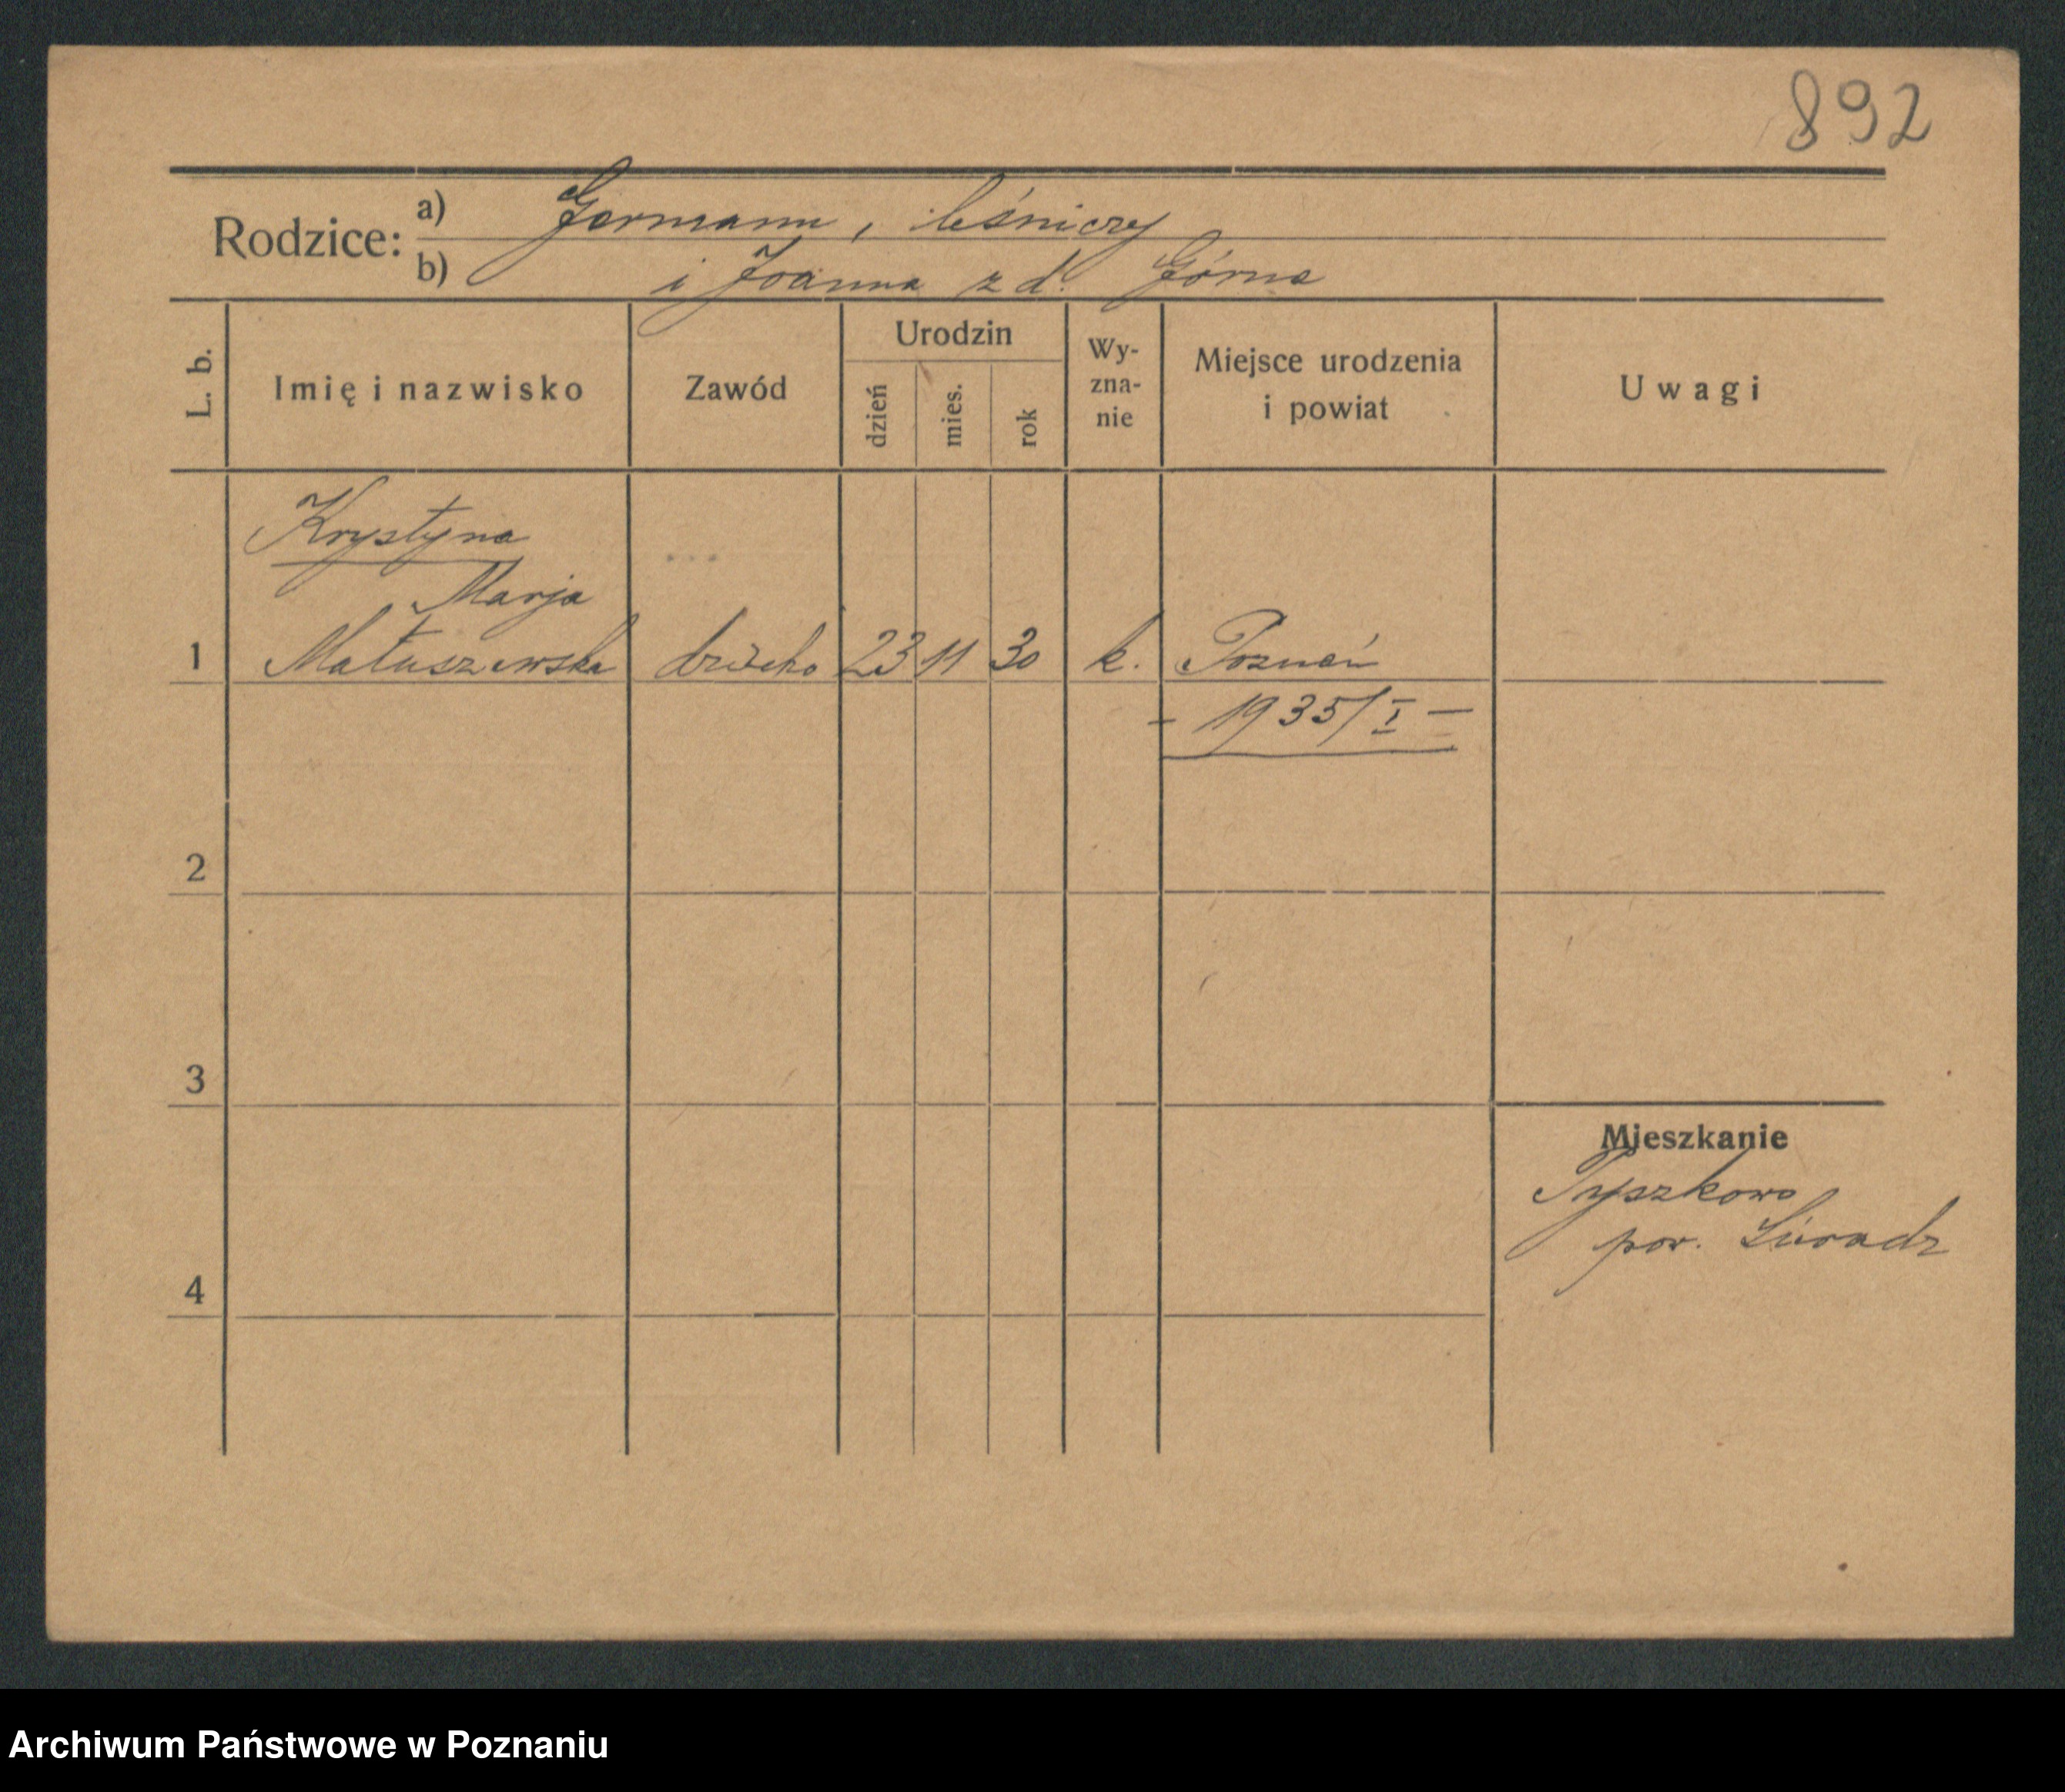 892
Rodzice:
a) Germann, leśniczy
b) i Joanna z d. Górna
L. b.
Imię i nazwisko
Zawód
Urodzin
dzień
mies.
rok
Wy-
zna-
nie
Miejsce urodzenia
i powiat
Uwagi
Krystyna
Marja
1 Matuszewska dziecko 23 11 30 k. Poznań
- 1935/I -
2
3
Mieszkanie
pow. Sieradz
4
Archiwum Państwowe w Poznaniu